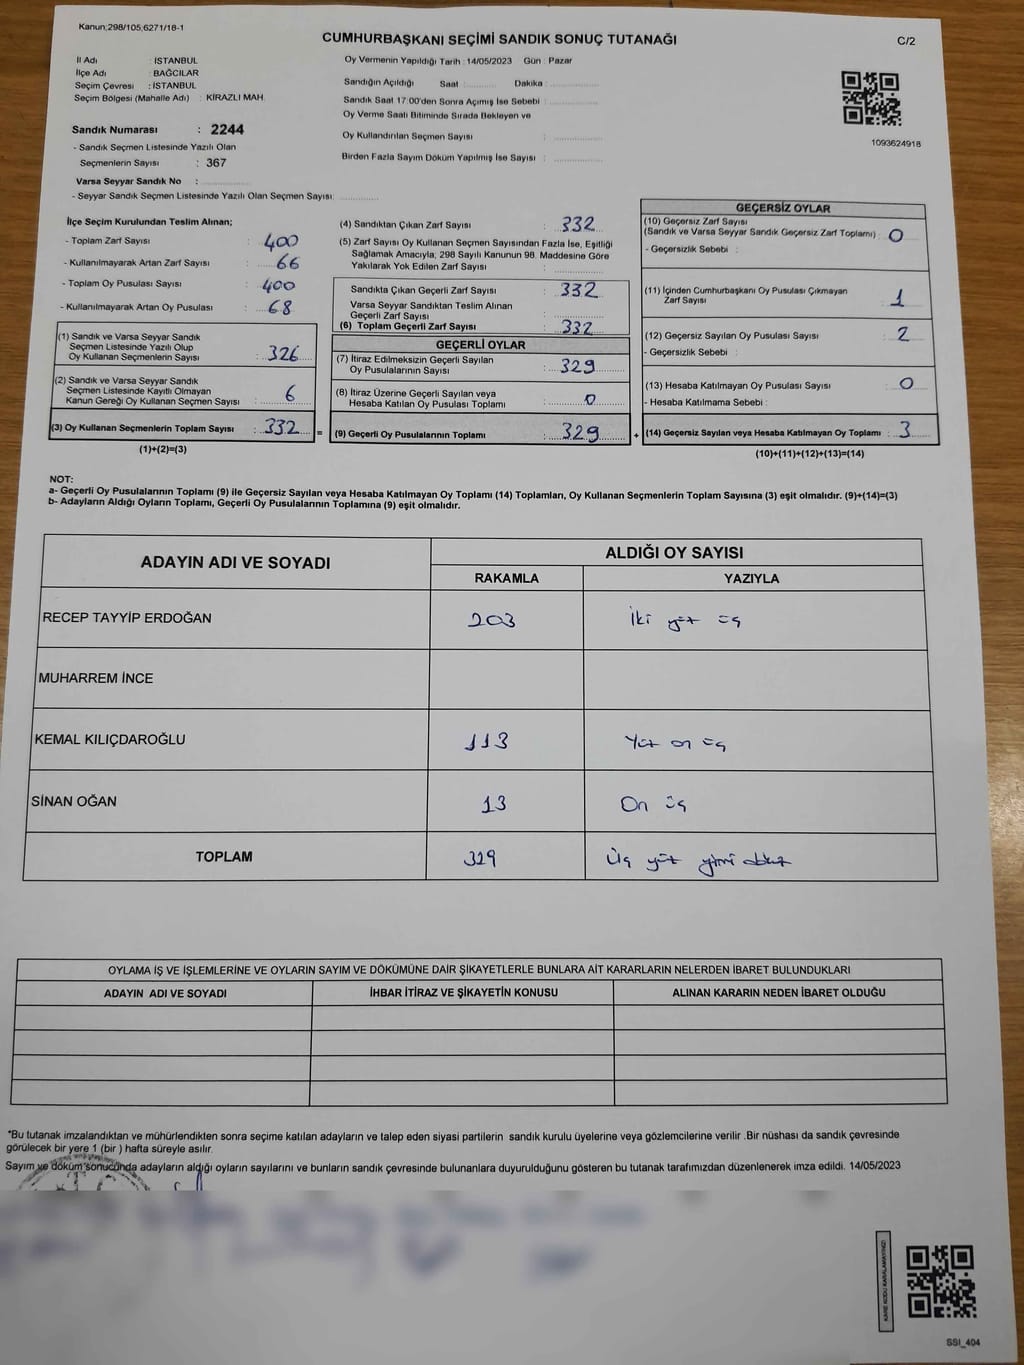 Kanun;298/105,6271/18-1
CUMHURBAŞKANI SEÇİMİ SANDIK SONUÇ TUTANAĞI
C/2
İl Adı : İSTANBUL
İlçe Adı : BAĞCILAR
Seçim Çevresi : İSTANBUL
Seçim Bölgesi (Mahalle Adı) : KİRAZLI MAH.
Sandık Numarası : 2244
- Sandık Seçmen Listesinde Yazılı Olan
Seçmenlerin Sayısı : 367
Varsa Seyyar Sandık No :
- Seyyar Sandık Seçmen Listesinde Yazılı Olan Seçmen Sayısı:
Oy Vermenin Yapıldığı Tarih : 14/05/2023 Gün : Pazar
Sandığın Açıldığı Saat : Dakika :
Sandık Saat 17:00'den Sonra Açımış İse Sebebi :
Oy Verme Saati Bitiminde Sırada Bekleyen ve
Oy Kullandırılan Seçmen Sayısı :
Birden Fazla Sayım Döküm Yapılmış İse Sayısı :
1093624918
İlçe Seçim Kurulundan Teslim Alınan;
- Toplam Zarf Sayısı : 400
- Kullanılmayarak Artan Zarf Sayısı : 66
- Toplam Oy Pusulası Sayısı : 400
- Kullanılmayarak Artan Oy Pusulası : 68
(1) Sandık ve Varsa Seyyar Sandık
Seçmen Listesinde Yazılı Olup
Oy Kullanan Seçmenlerin Sayısı : 326
(2) Sandık ve Varsa Seyyar Sandık
Seçmen Listesinde Kayıtlı Olmayan
Kanun Gereği Oy Kullanan Seçmen Sayısı : 6
(3) Oy Kullanan Seçmenlerin Toplam Sayısı : 332
(1)+(2)=(3)
(4) Sandıktan Çıkan Zarf Sayısı : 332
(5) Zarf Sayısı Oy Kullanan Seçmen Sayısından Fazla İse, Eşitliği
Sağlamak Amacıyla; 298 Sayılı Kanunun 98. Maddesine Göre
Yakılarak Yok Edilen Zarf Sayısı :
Sandıkta Çıkan Geçerli Zarf Sayısı : 332
Varsa Seyyar Sandıktan Teslim Alınan
Geçerli Zarf Sayısı :
(6) Toplam Geçerli Zarf Sayısı : 332
GEÇERLİ OYLAR
(7) İtiraz Edilmeksizin Geçerli Sayılan
Oy Pusulalarının Sayısı : 329
(8) İtiraz Üzerine Geçerli Sayılan veya
Hesaba Katılan Oy Pusulası Toplamı : 0
= (9) Geçerli Oy Pusulalarının Toplamı : 329
GEÇERSİZ OYLAR
(10) Geçersiz Zarf Sayısı
(Sandık ve Varsa Seyyar Sandık Geçersiz Zarf Toplamı) : 0
- Geçersizlik Sebebi :
(11) İçinden Cumhurbaşkanı Oy Pusulası Çıkmayan
Zarf Sayısı : 1
(12) Geçersiz Sayılan Oy Pusulası Sayısı : 2
- Geçersizlik Sebebi :
(13) Hesaba Katılmayan Oy Pusulası Sayısı : 0
- Hesaba Katılmama Sebebi :
+ (14) Geçersiz Sayılan veya Hesaba Katılmayan Oy Toplamı : 3
(10)+(11)+(12)+(13)=(14)
NOT:
a- Geçerli Oy Pusulalarının Toplamı (9) ile Geçersiz Sayılan veya Hesaba Katılmayan Oy Toplamı (14) Toplamları, Oy Kullanan Seçmenlerin Toplam Sayısına (3) eşit olmalıdır. (9)+(14)=(3)
b- Adayların Aldığı Oyların Toplamı, Geçerli Oy Pusulalarının Toplamına (9) eşit olmalıdır.
ADAYIN ADI VE SOYADI
ALDIĞI OY SAYISI
RAKAMLA YAZIYLA
RECEP TAYYİP ERDOĞAN 203 İki yüz üç
MUHARREM İNCE
KEMAL KILIÇDAROĞLU 113 Yüz on üç
SİNAN OĞAN 13 On üç
TOPLAM 329 Üç yüz yirmi dokuz
OYLAMA İŞ VE İŞLEMLERİNE VE OYLARIN SAYIM VE DÖKÜMÜNE DAİR ŞİKAYETLERLE BUNLARA AİT KARARLARIN NELERDEN İBARET BULUNDUKLARI
ADAYIN ADI VE SOYADI İHBAR İTİRAZ VE ŞİKAYETİN KONUSU ALINAN KARARIN NEDEN İBARET OLDUĞU
*Bu tutanak imzalandıktan ve mühürlendikten sonra seçime katılan adayların ve talep eden siyasi partilerin sandık kurulu üyelerine veya gözlemcilerine verilir .Bir nüshası da sandık çevresinde
görülecek bir yere 1 (bir ) hafta süreyle asılır.
Sayım ve döküm sonucunda adayların aldığı oyların sayılarını ve bunların sandık çevresinde bulunanlara duyurulduğunu gösteren bu tutanak tarafımızdan düzenlenerek imza edildi. 14/05/2023
KARE KODU KARALAMAYINIZ!
SSI_404